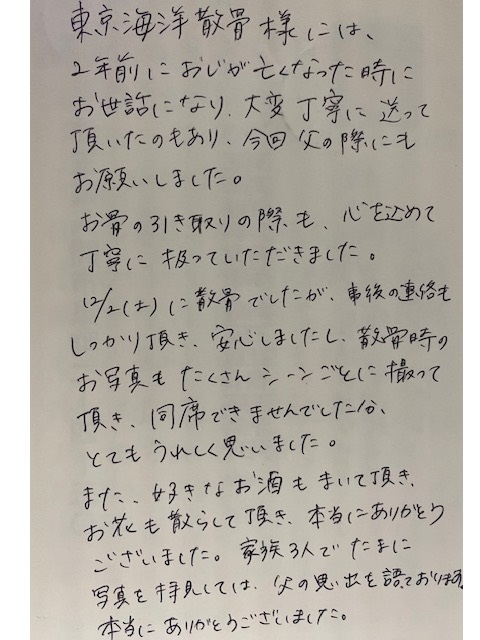 東京海洋散骨様には、
2年前におじが亡くなった時に
お世話になり、大変丁寧に送って
頂いたのもあり、今回父の際にも
お願いしました。
お骨の引き取りの際も、心を込めて
丁寧に扱っていただきました。
12/2(土)に散骨でしたが、事後の連絡も
しっかり頂き、安心しましたし、散骨時の
お写真もたくさんシーンごとに撮って
頂き、同席できませんでした分、
とてもうれしく思いました。
また、好きなお酒もまいて頂き、
お花も散らして頂き、本当にありがとう
ございました。家族3人でたまに
写真を拝見しては、父の思い出を語っております。
本当にありがとうございました。